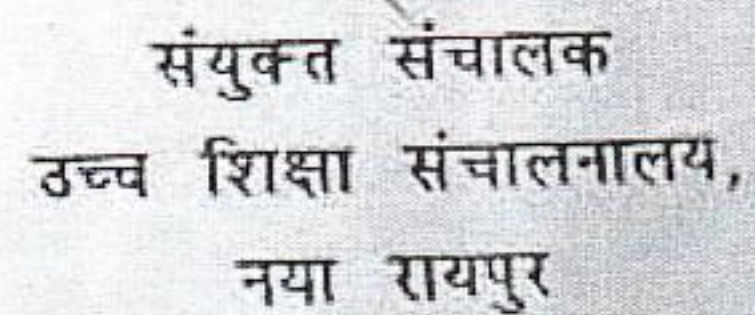 संयुक्त संचालक
ठच्च शिक्षा संचालनालय,
नया रायपुर